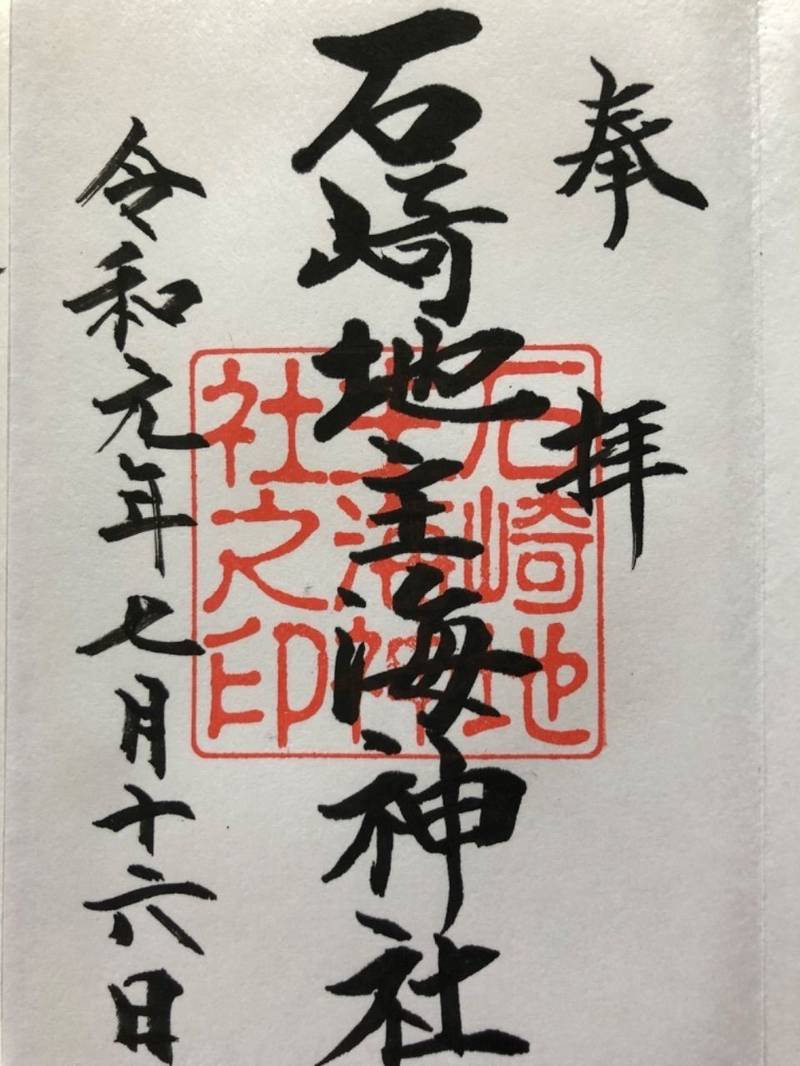 奉拝
石崎地主海神社
令和元年七月十六日
石崎地
主海神
社之印